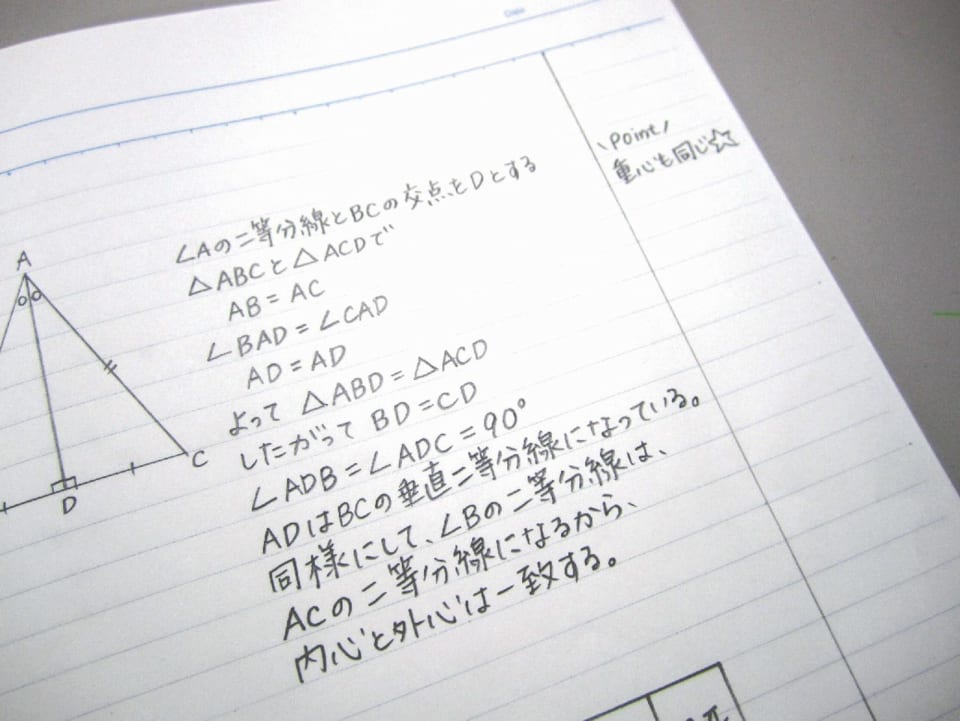 Date
\Point/
重心も同じ☆
∠Aの二等分線とBCの交点をDとする
△ABCと△ACDで
AB=AC
∠BAD=∠CAD
AD=AD
よって △ABD=△ACD
したがって BD=CD
∠ADB=∠ADC=90°
ADはBCの垂直二等分線になっている。
同様にして、∠Bの二等分線は、
ACの二等分線になるから、
内心と外心は一致する。
A
C
D